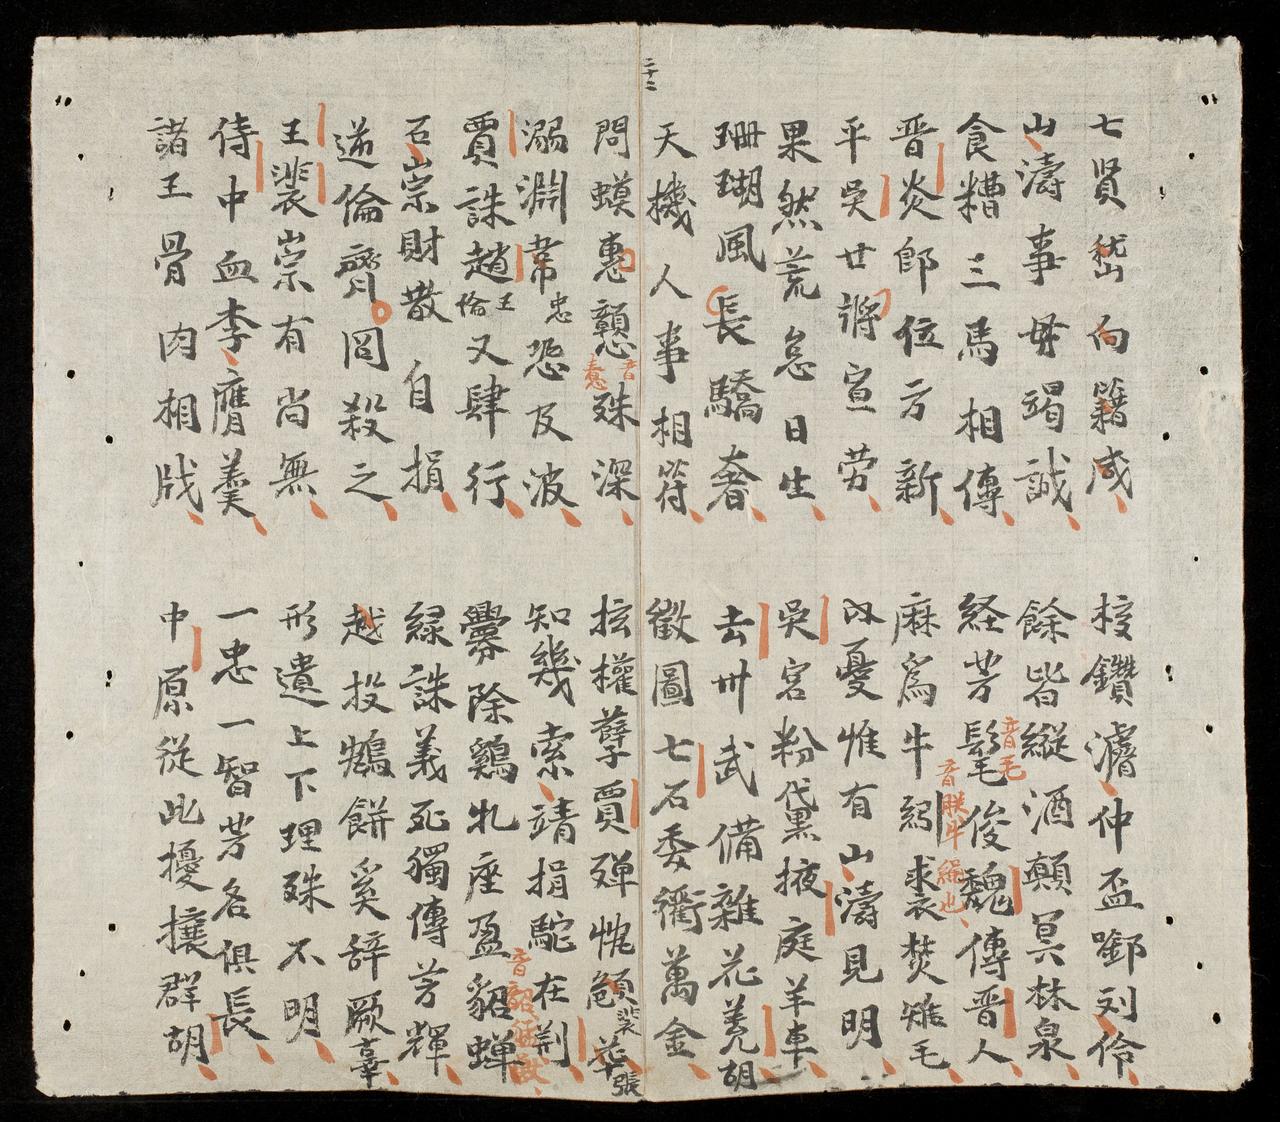 二十二
七贤嵇向籍咸
核鑽濬仲盃啣刘伶
山濤事毋竭誠
餘皆縱酒顛冥林泉
食糟三馬相傳
経芳髦俊魏傳晋人
音毛
晋炎郎位方新
麻為牛紖裘焚雉毛
音朕牛縄也
平吳廿將宣劳
以憂惟有山濤見明
果然荒怠日生
吳宮粉黛掖庭羊車
珊瑚風長驕奢
去卅武備雜花羌胡
天機人事相符
徵圖七石委衢萬金
問蟆惠戇殊深
音惷
拡權孽賈殫忱頠裴華張
溺淵常忠恐及波
知幾索靖捐駝在荆
賈誅趙王倫又肆行
釁除鷄礼座盈貂蟬
音韶
石崇財散自捐
緑誅義死獨傳芳輝
逆倫齊冏殺之
越投鴆餅奚辞厥辜
王裴崇有尚無
形遺上下理殊不明
侍中血李膺羹
一忠一智芳各俱長
諸王骨肉相戕
中原従此擾攘群胡